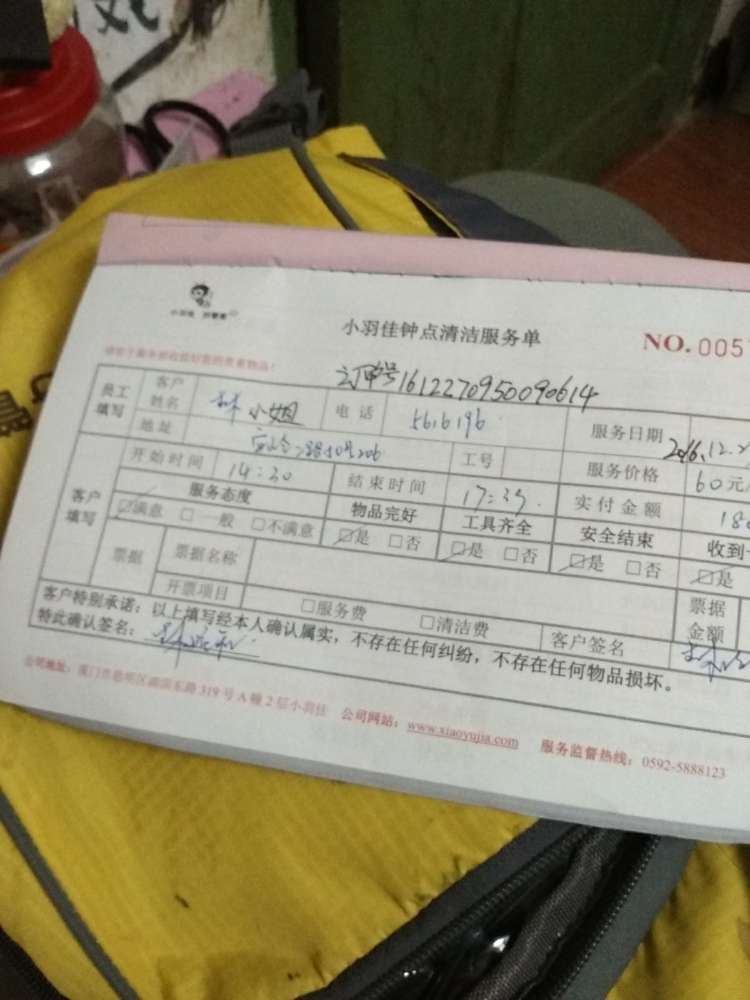 小羽佳钟点清洁服务单
NO.005
订单号1612270950090614
员工填写 客户姓名 林小姐 电话 5616196 服务日期 2016.12.2
地址 206 工号 服务价格 60元
客户填写 开始时间 14:30 结束时间 17:35 实付金额 180
服务态度 物品完好 工具齐全 安全结束 收到
☑满意 □一般 □不满意 ☑是 □否 ☑是 □否 ☑是 □否 ☑是
票据 票据名称 票据金额
开票项目 □服务费 □清洁费 客户签名
客户特别承诺：以上填写经本人确认属实，不存在任何纠纷，不存在任何物品损坏。
特此确认签名：
公司地址：厦门市思明区湖滨东路319号A幢2层小羽佳 公司网站：www.xiaoyujia.com 服务监督热线：0592-5888123